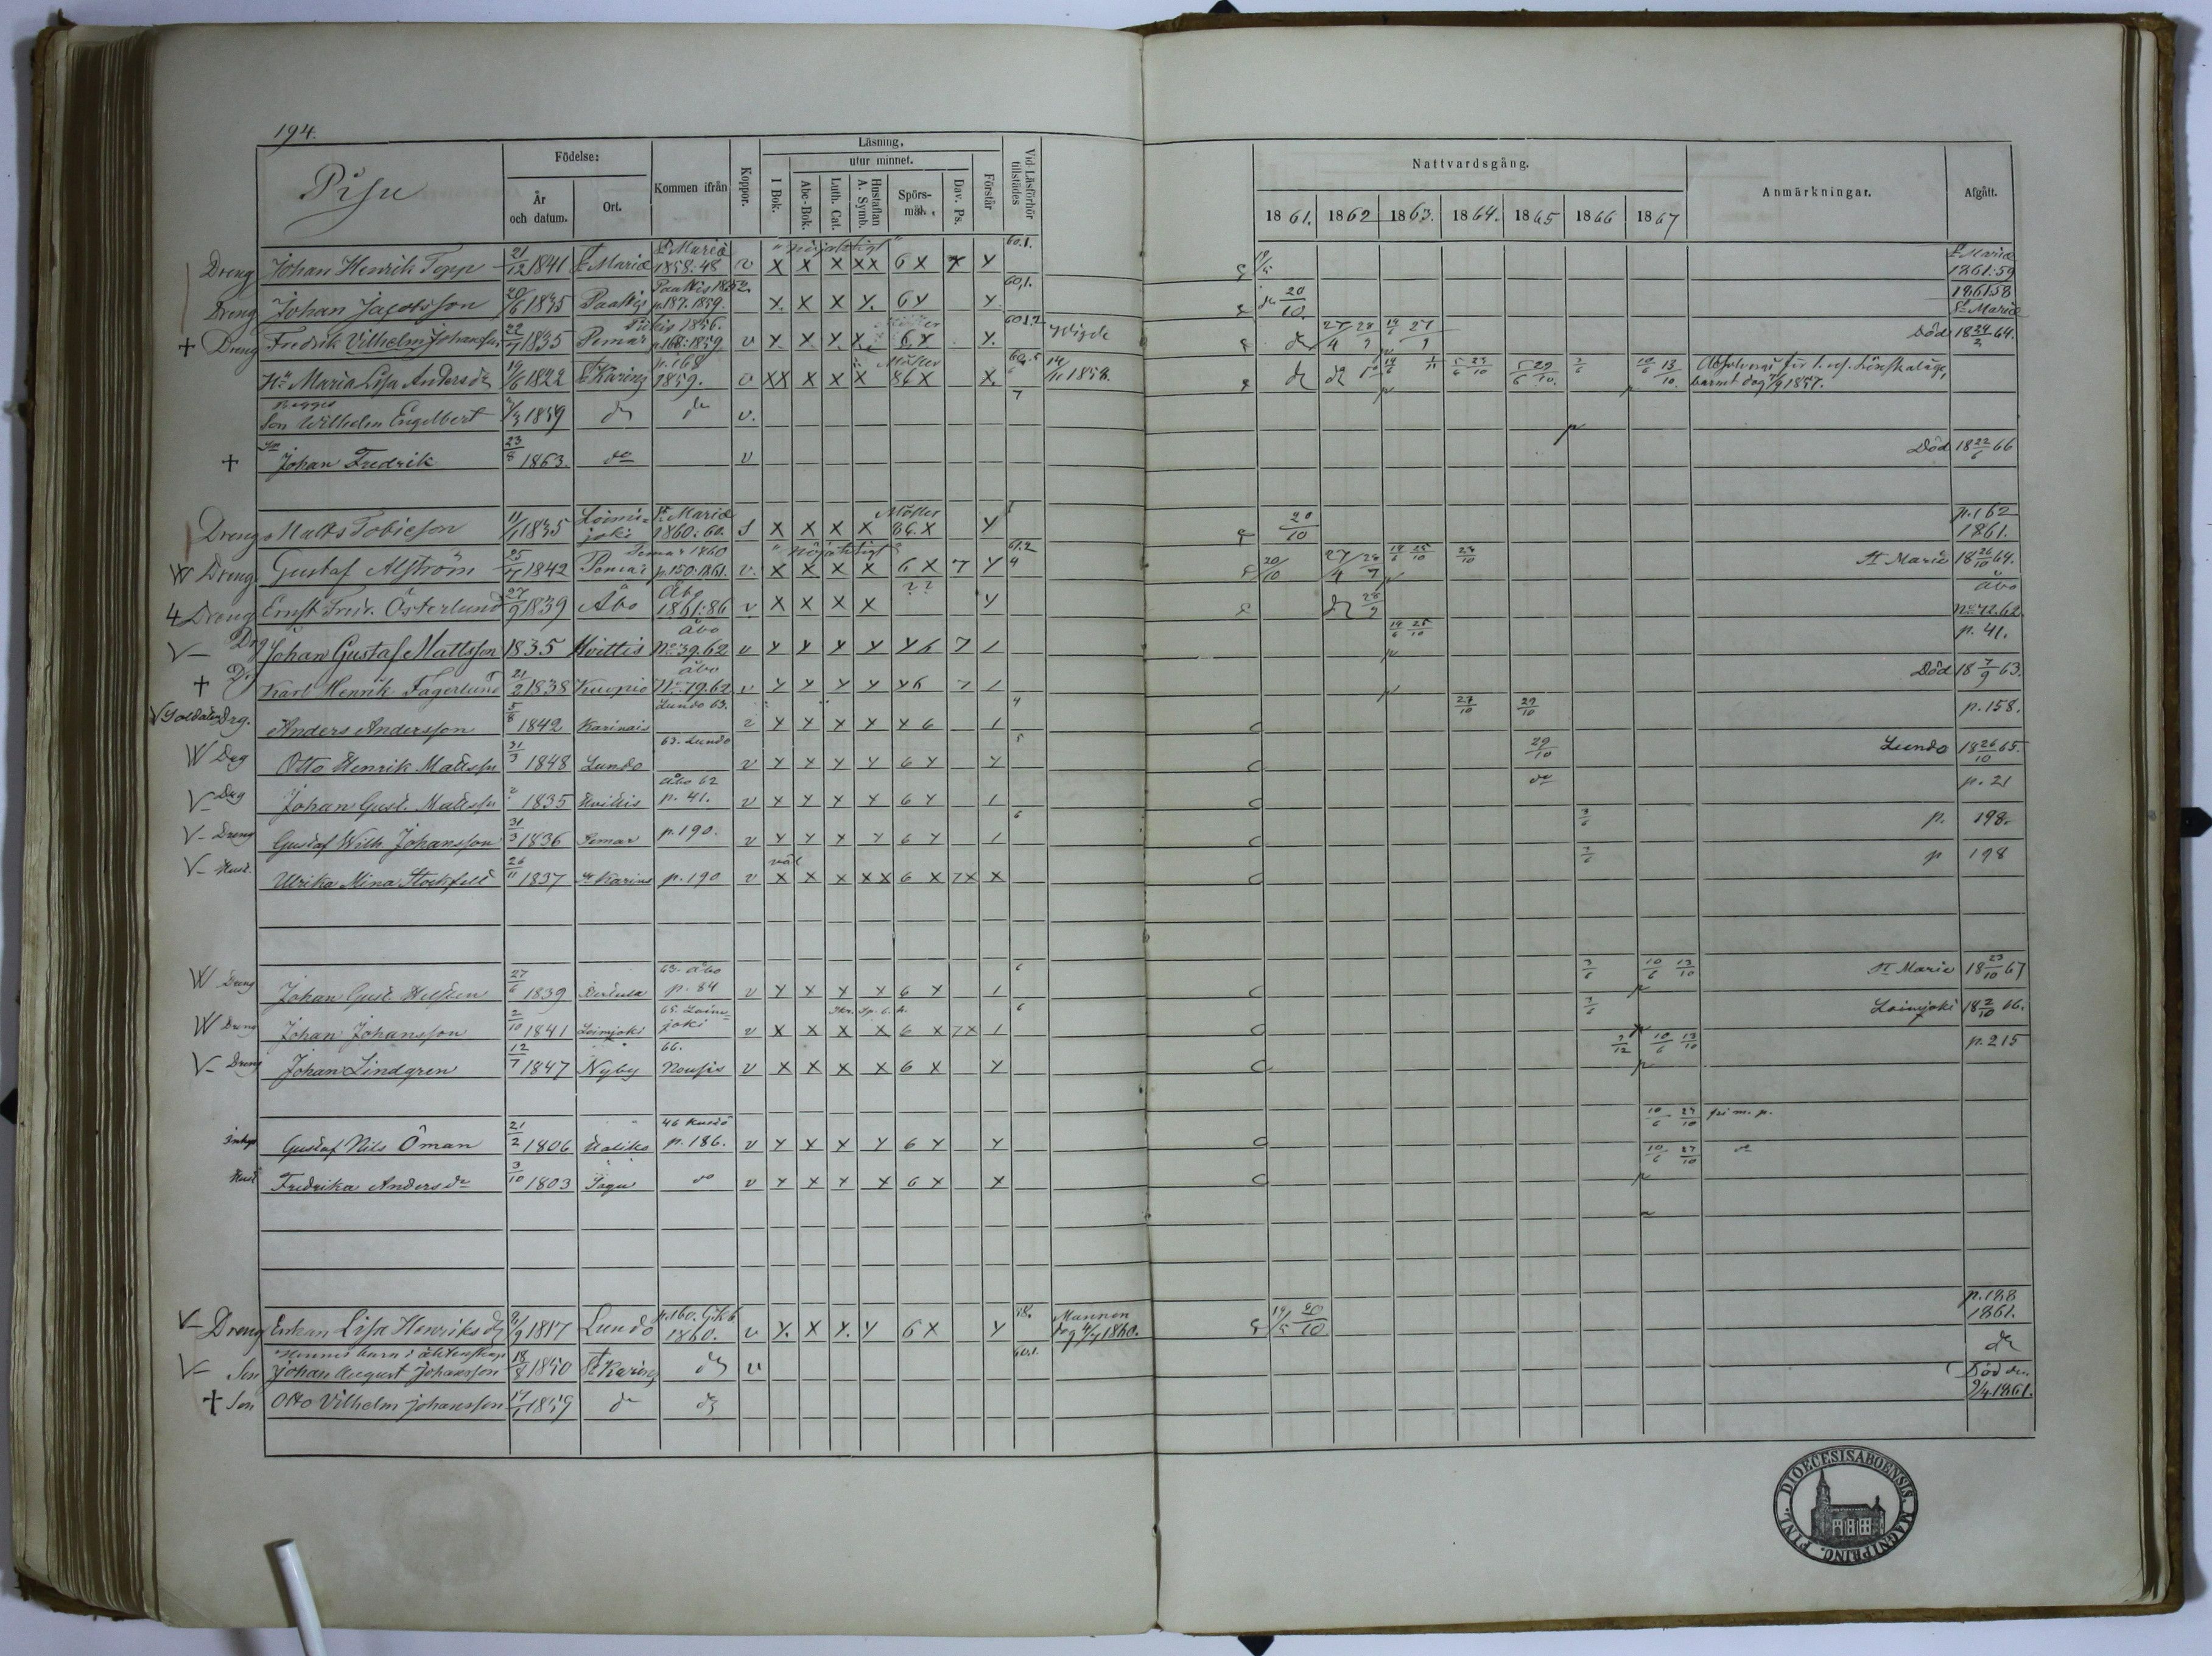 194.
Pisu
Födelse:
År och datum.
Ort.
Kommen ifrån
Koppor.
Läsning,
utur minnet.
I Bok.
Abc-Bok.
Luth. Cat.
Hustaflan A. Symb.
Spörsmål.
Dav. Ps.
Förstår
Vid Läsförhör tillstädes
Nattvardsgång.
1861. 1862 1863. 1864. 1865 1866 1867
Anmärkningar.
Afgått.
Dreng Johan Henrik Topp 21/12 1841 St Mariæ St Mariæ 1858:48 v x x x xx 6 x x y 60.1. 19/5 St Mariæ 1861:59
Dreng Johan Jacobsson 20/6 1835 Paattis p.187. 1859. x x x y. 6 y y. 60,1. 20/10. 1861:58 St Mariæ
+ Dreng Fredrik Vilhelm Johansson 22/7 1835 Pemar 1856. p.168:1859 v y. x y. x 6 y. y. Vigde de 27/4 28/9 14/6 27/9 Död 18 24/2 64.
Hu Maria Lisa Andersdr 19/6 1822 St Karins p.168 1859. v xx x x x 86 x x. 14/11 1858. dr dr 14/6 1/11 5/6 23/10 5/6 29/10. 3/6 10/6 13/10.
barnet dog 1857.
Begges
Son Wilhelm Engelbert 1859 dr de v. 7
+ Son Johan Fredrik 23/8 1863. do v Död 18 22/6 66
Dreng Matts Tobieson 11/1 1835 Loimijoki St Mariæ 1860:60. S x x x x 86. x y 20/10 p.162 1861.
W Dreng Gustaf Alström 25/7 1842 Pemar Pemar 1860 p.150.1861. v. x x x x 6 x 7 y 61.2 4 20/10 27/4 28/9 14/6 25/10 23/10 St Mariæ 18 26/10 64.
4 Dreng Ernst Fredr. Österlund 27/9 1839 Åbo Åbo 1861:86 v x x x x ?? y dr 28/9 Åbo No 72.62
V Drg Johan Gustaf Mattsson 1835 Hvittis Åbo No 39.62 v y y y y y6 7 1 14/6 25/10 p. 41.
+ Drg Karl Henrik Fagerlund 21/2 1838 Kuopio Åbo No 79.62 v y y y y y6 7 1 Död 18 7/9 63.
V Soldaten Drg. Anders Andersson 5/8 1842 Karinais Lundo 63. v y y y y x 6 1 4 27/10 29/10 p.158.
W Drg Otto Henrik Mattsson 31/3 1848 Lundo 63. Lundo v y y y y 6 y y 5 29/10 Lundo 18 26/10 65.
V Drg Johan Gust. Mattsson ? 1835 Hvittis Åbo 62 p. 41. v x y x y 6 y 1 do p. 21
V Dreng Gustaf Wilh Johansson 31/3 1836 Pemar p.190. v y y y y 6 y 1 6 3/6 p. 198.
V Hust. Ulrika Mina Stockfelt 26/11 1837 St Karins p.190 v väl x x x xx 6 x 7x x 3/6 p 198
W Dreng Johan Gust. Helsten 27/6 1839 63. Åbo p. 84 v y x y x 6 x 1 6 3/6 10/6 13/10 St Marie 18 23/10 67
W Dreng Johan Johansson 2/10 1841 Loimijoki 65. Loimjoki v x x x x 6 x 7x 1 6 3/6 Loimjoki 18 2/10 66.
V Dreng Johan Lindgren 12/7 1847 Nyby 66. Nousis v x x x x 6 x y 2/12 10/6 13/10 p.215
Inhys Gustaf Nils Öman 21/2 1806 Haliko 46 Kustö p.186. v y x x y 6 y y 10/6 27/10 fri m. p.
Hust Fredrika Andersdr 3/10 1803 Sagu do v y x y x 6 x x 10/6 27/10 do
V Dreng Enkan Lisa Henriksdr 9/9 1817 Lundo p.160. 1860. v y. x y. y 6 x y Mannen dog 4/4 1860. 19/5 20/10 p.188 1861.
Hennes barn i äktenskap
V Son Johan August Johansson 18/8 1850 St Karins dr v 60.1. dr
+ Son Otto Vilhelm Johansson 17/1 1859 dr dr Död den 9/4.1861.
DIOECESIS ABOENSIS. MAGNI PRINC. FINL.